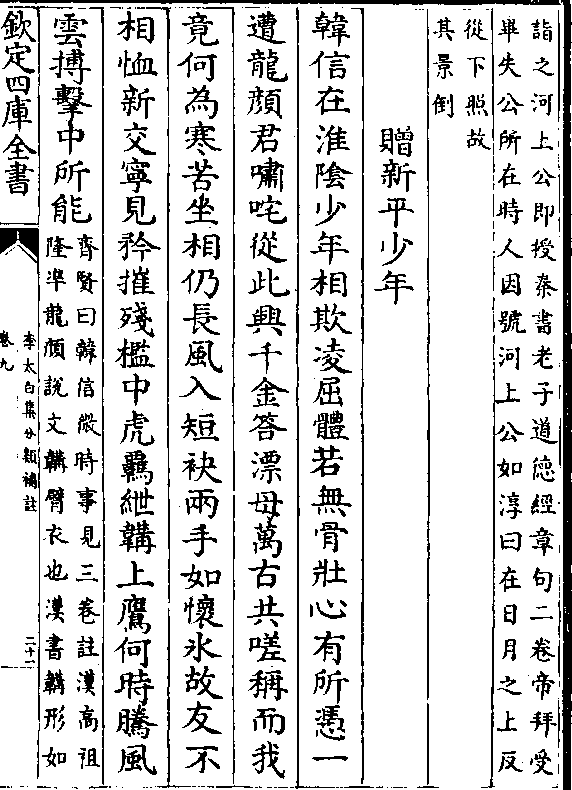 詣之河上公即授素書老子道德經章句二卷帝拜受
畢失公所在時人因號河上公如淳曰在日月之上反
從下照故
其景倒
贈新平少年
韓信在淮陰少年相欺凌屈體若無骨壯心有所憑一
遭龍顔君嘯咤從此興千金答漂母萬古共嗟稱而我
竟何為寒苦坐相仍長風入短袂兩手如懷冰故友不
相恤新交寧見矜摧殘檻中虎羈紲韝上鷹何時騰風
雲搏擊申所能
齊賢曰韓信微時事見三卷註漢高祖
隆準龍顔說文韝臂衣也漢書韝形如
欽定四庫全書
李太白集分類補註
卷九
二十二